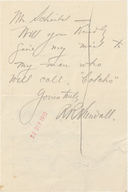 Mr. Scheibel -
Will you kindly
give my mail to
my man who
will call. "Carlos"
Yours truly,
R. R. Kendall